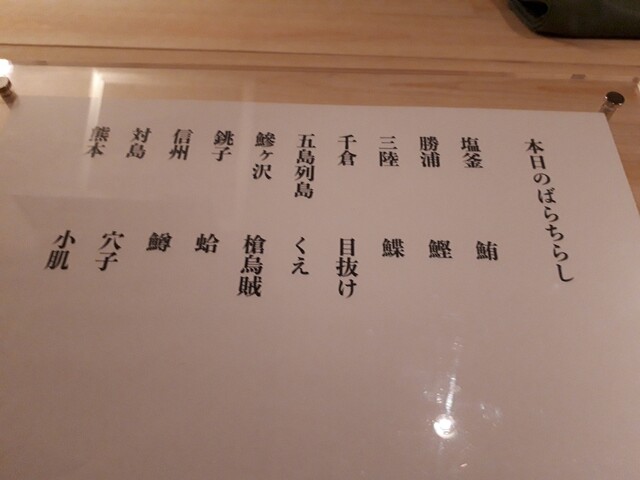 本日のばらちらし
塩釜 鮪
勝浦 鰹
三陸 鰈
千倉 目抜け
五島列島 くえ
鰺ヶ沢 槍烏賊
銚子 蛤
信州 鱒
対島 穴子
熊本 小肌